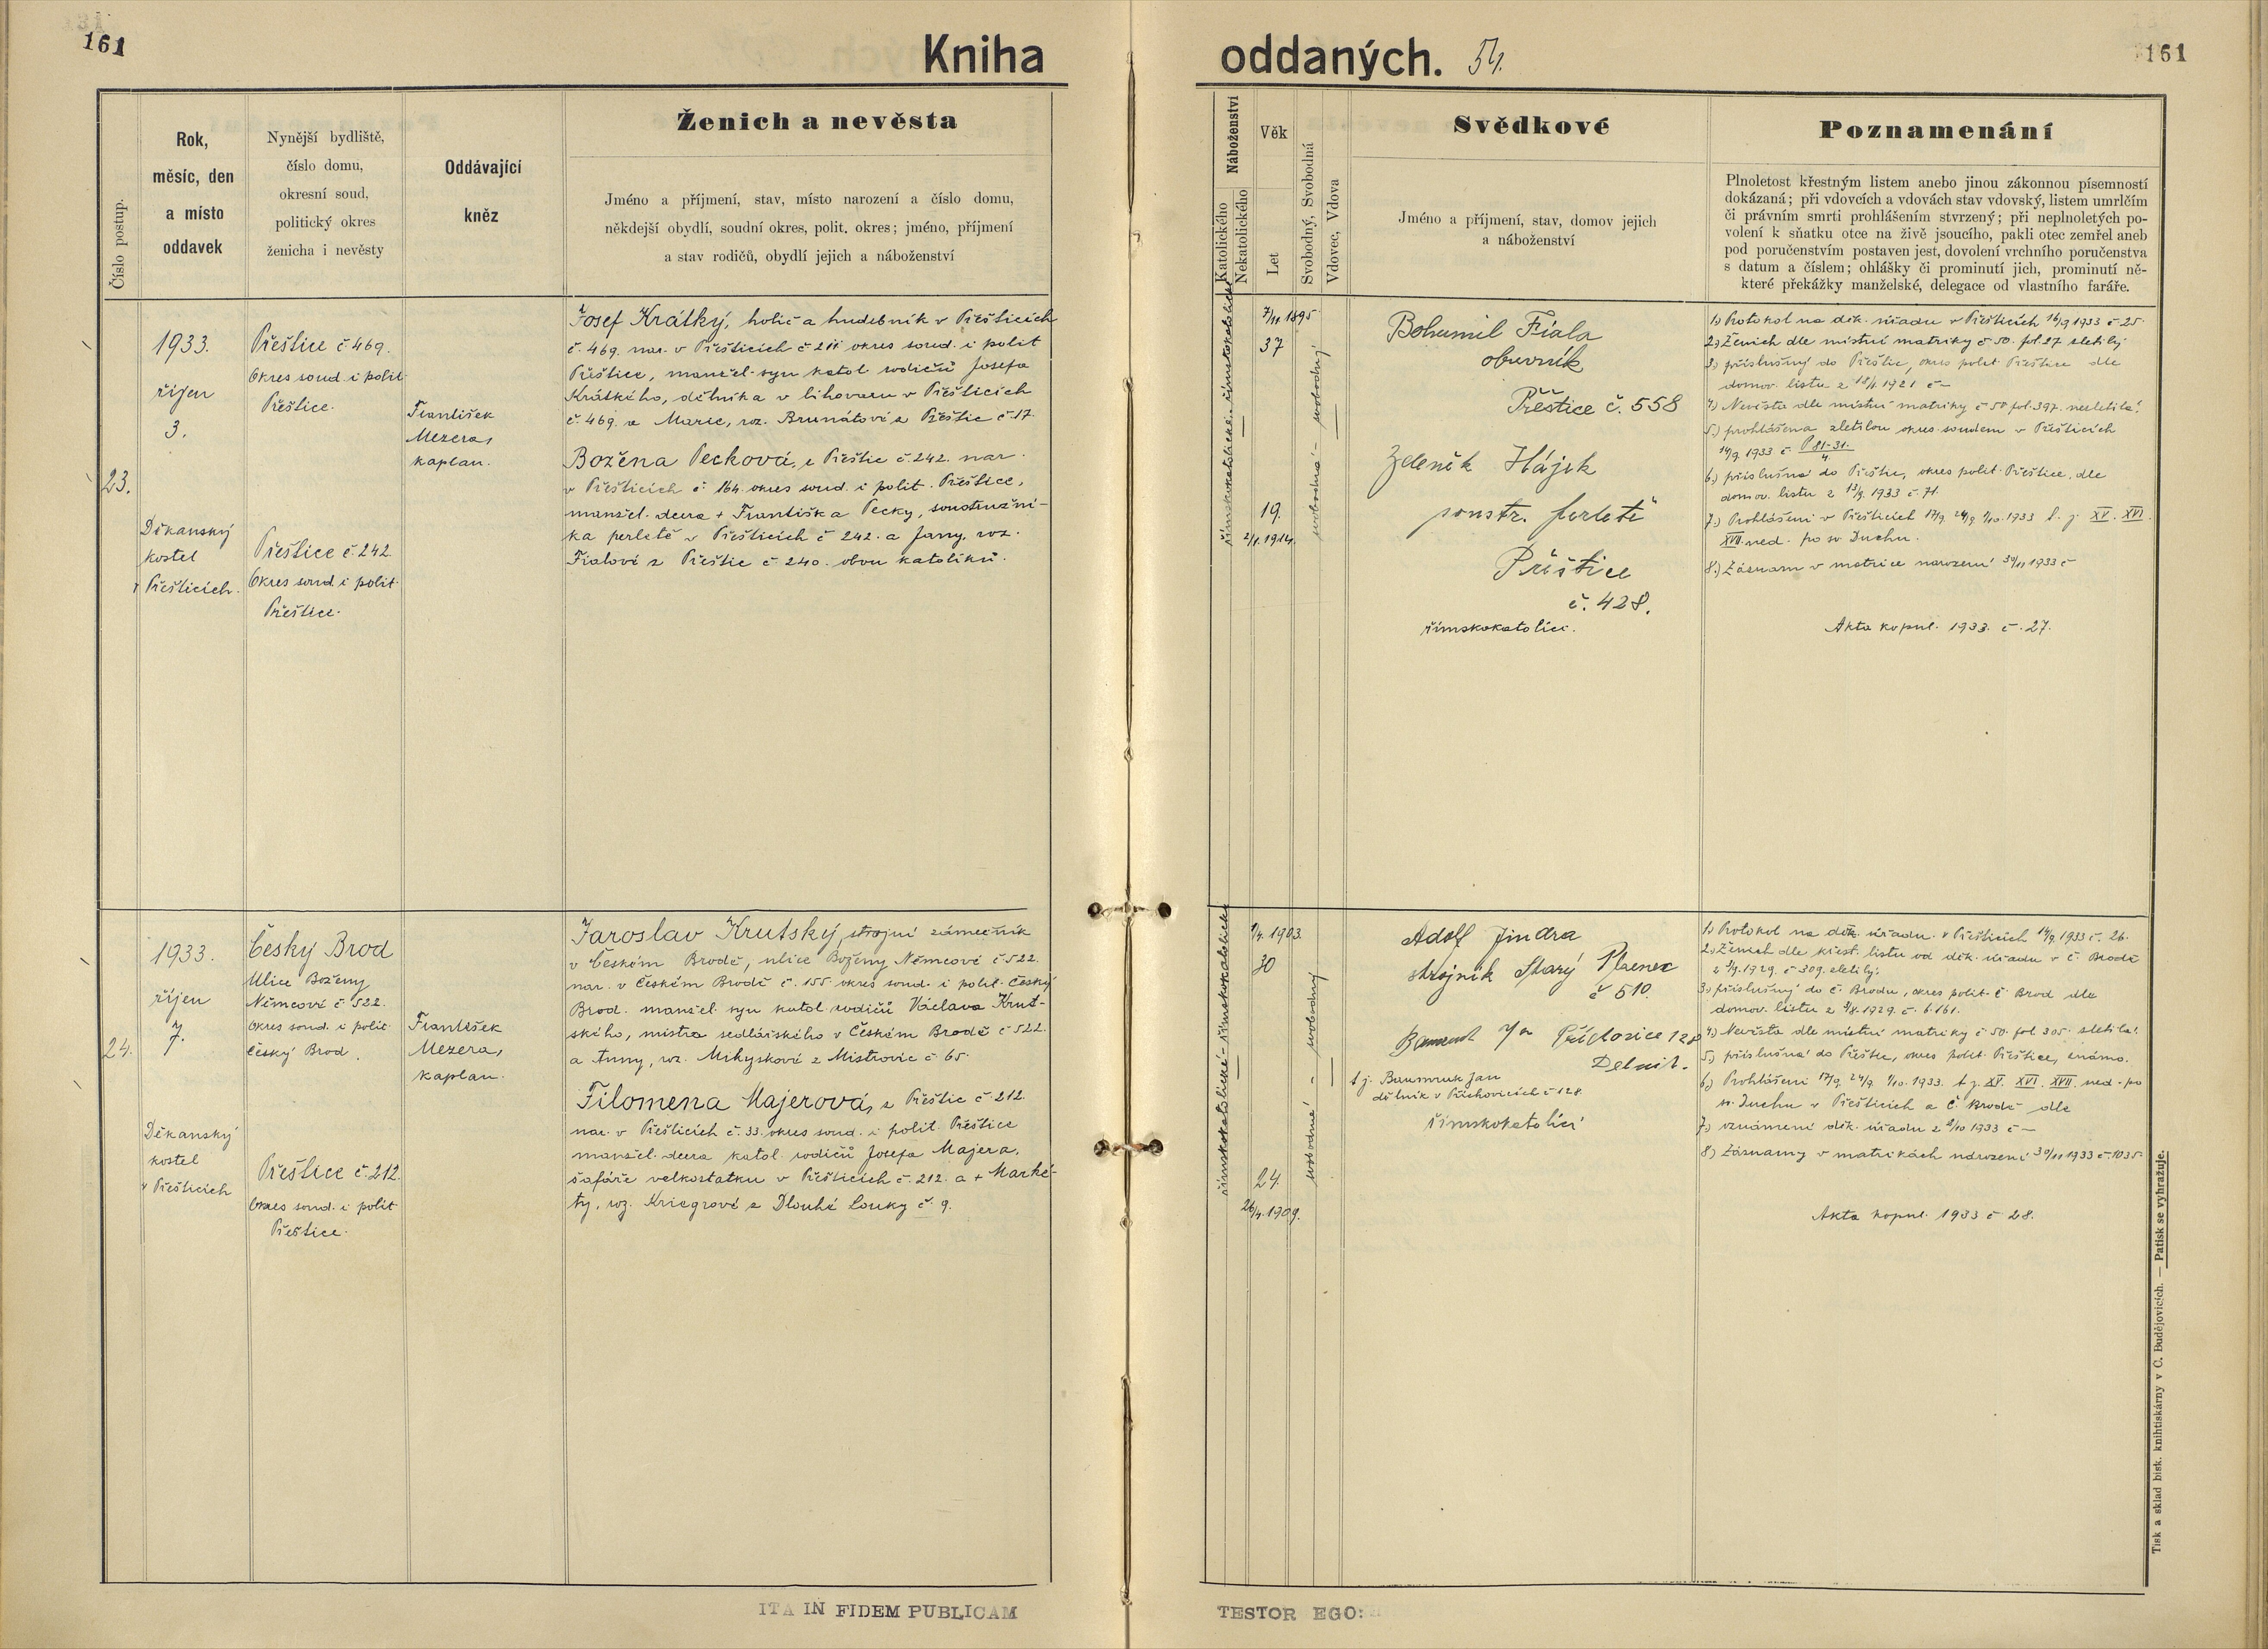 161
Kniha
oddaných. 54.
161
Číslo postup.
Rok,
měsíc, den
a místo
oddavek
Nynější bydliště,
číslo domu,
okresní soud,
politický okres
ženicha i nevěsty
Oddávající
kněz
Ženich a nevěsta
Jméno a příjmení, stav, místo narození a číslo domu,
někdejší obydlí, soudní okres, polit. okres; jméno, příjmení
a stav rodičů, obydlí jejich a náboženství
Náboženství
Katolického
Nekatolického
Věk
Let
Svobodný, Svobodná
Vdovec, Vdova
Svědkové
Jméno a příjmení, stav, domov jejich
a náboženství
Poznamenání
Plnoletost křestným listem anebo jinou zákonnou písemností
dokázaná; při vdovcích a vdovách stav vdovský, listem umrlčím
či právním smrti prohlášením stvrzený; při neplnoletých po-
volení k sňatku otce na živě jsoucího, pakli otec zemřel aneb
pod poručenstvím postaven jest, dovolení vrchního poručenstva
s datum a číslem; ohlášky či prominutí jich, prominutí ně-
které překážky manželské, delegace od vlastního faráře.
23.
1933.
říjen
3.
Děkanský
kostel
v Přešticích.
Přeštice č. 469.
Okres soud. i polit.
Přeštice.
Přeštice č. 242
Okres soud. i polit.
Přeštice.
František
Mezera,
kaplan.
Josef Krátký, holič a hudebník v Přešticích
č. 469. nar. v Přešticích č. 211 okres soud. i polit
Přeštice, manžel. syn katol. rodičů Josefa
Krátkého, dělníka v lihovaru v Přešticích
č. 469. a Marie, roz. Brunátové z Přeštic č. 17
Božena Pecková, z Přeštic č. 242. nar.
v Přešticích č. 164. okres soud. i polit. Přeštice,
manžel. dcera + Františka Pecky, soustružní-
ka perletě v Přešticích č. 242. a Jany, roz.
Fialové z Přeštic č. 240. obou katolíků.
římskokatolické - římskokatolické
7/11 1895.
37
19.
2/1. 1914.
svobodná - svobodný
Bohumil Fiala
obuvník
Přeštice č. 558
Zdeněk Hájek
soustr. perleti
Přeštice
č. 428.
římskokatolíci.
1) Protokol na děk. úřadu v Přešticích 16/9 1933 č. 25.
2.) Ženich dle místní matriky č. 50. fol. 27 zletilý
3.) příslušný do Přeštic, okres polit. Přeštice dle
domov. listu z 18/1. 1921 č –
4.) Nevěsta dle místní matriky č. 50 fol. 397. nezletilá.
5.) prohlášena zletilou okres. soudem v Přešticích
14/9. 1933 č. P 81-31./4.
6.) příslušná do Přeštic, okres polit. Přeštice, dle
domov. listu z 13/9. 1933 č. 71.
7.) Prohlášení v Přešticích 17/9. 24/9 1/10. 1933 t. j. XV. XVI.
XVII. ned. po sv. Duchu.
8.) Záznam v matrice narození 30/11 1933 č
Akta kopul. 1933. č. 27.
24.
1933.
říjen
7.
Děkanský
kostel
v Přešticích
Český Brod
Ulice Boženy
Němcové č. 522.
Okres soud. i polit
Český Brod.
Přeštice č. 212.
Okres soud. i polit
Přeštice.
František
Mezera,
kaplan.
Jaroslav Krutský, strojní zámečník
v Českém Brodě, ulice Boženy Němcové č. 522.
nar. v Českém Brodě č. 155. okres soud. i polit. Český
Brod. manžel. syn katol. rodičů Václava Krut-
ského, mistra sedlářského v Českém Brodě č. 522.
a Anny, roz. Mihyskové z Mistrovic č. 65.
Filomena Majerová, z Přeštic č. 212.
nar. v Přešticích č. 33. okres soud. i polit. Přeštice
manžel. dcera katol. rodičů Josefa Majera,
šafáře velkostatku v Přešticích č. 212. a + Marké-
ty, roz. Kriegrové z Dlouhé Louky č. 9.
římskokatolické - římskokatolické
1/4. 1903.
30
24.
26/4. 1909.
svobodná - svobodný
Adolf Jindra
strojník Starý Plzenec
č 510.
Příchovice 128
Delnik.
t. j. Baumruk Jan
dělník v Příchovicích č. 128.
římskokatolíci
1.) Protokol na děk. úřadu v Přešticích 14/9. 1933 č. 26.
2.) Ženich dle křest. listu od děk. úřadu v Č. Brodě
z 3/9. 1929. č. 309. zletilý.
3.) příslušný do Č. Brodu, okres polit. Č. Brod dle
domov. listu z 9/8. 1929. č. 6161.
4.) Nevěsta dle místní matriky č. 50. fol. 305. zletilá.
5.) příslušná do Přeštic, okres polit. Přeštice, známo.
6.) Prohlášení 17/9. 24/9. 1/10. 1933. t. j. XV. XVI. XVII. ned. po
sv. Duchu v Přešticích a Č. Brodě dle
7.) oznámení děk. úřadu z 2/10 1933 č –
8.) Záznamy v matrikách narození 30/11 1933 č. 1035.
Akta kopul. 1933 č. 28.
ITA IN FIDEM PUBLICAM
TESTOR EGO:
Tisk a sklad bisk. knihtiskárny v Č. Budějovicích. — Patisk se vyhražuje.